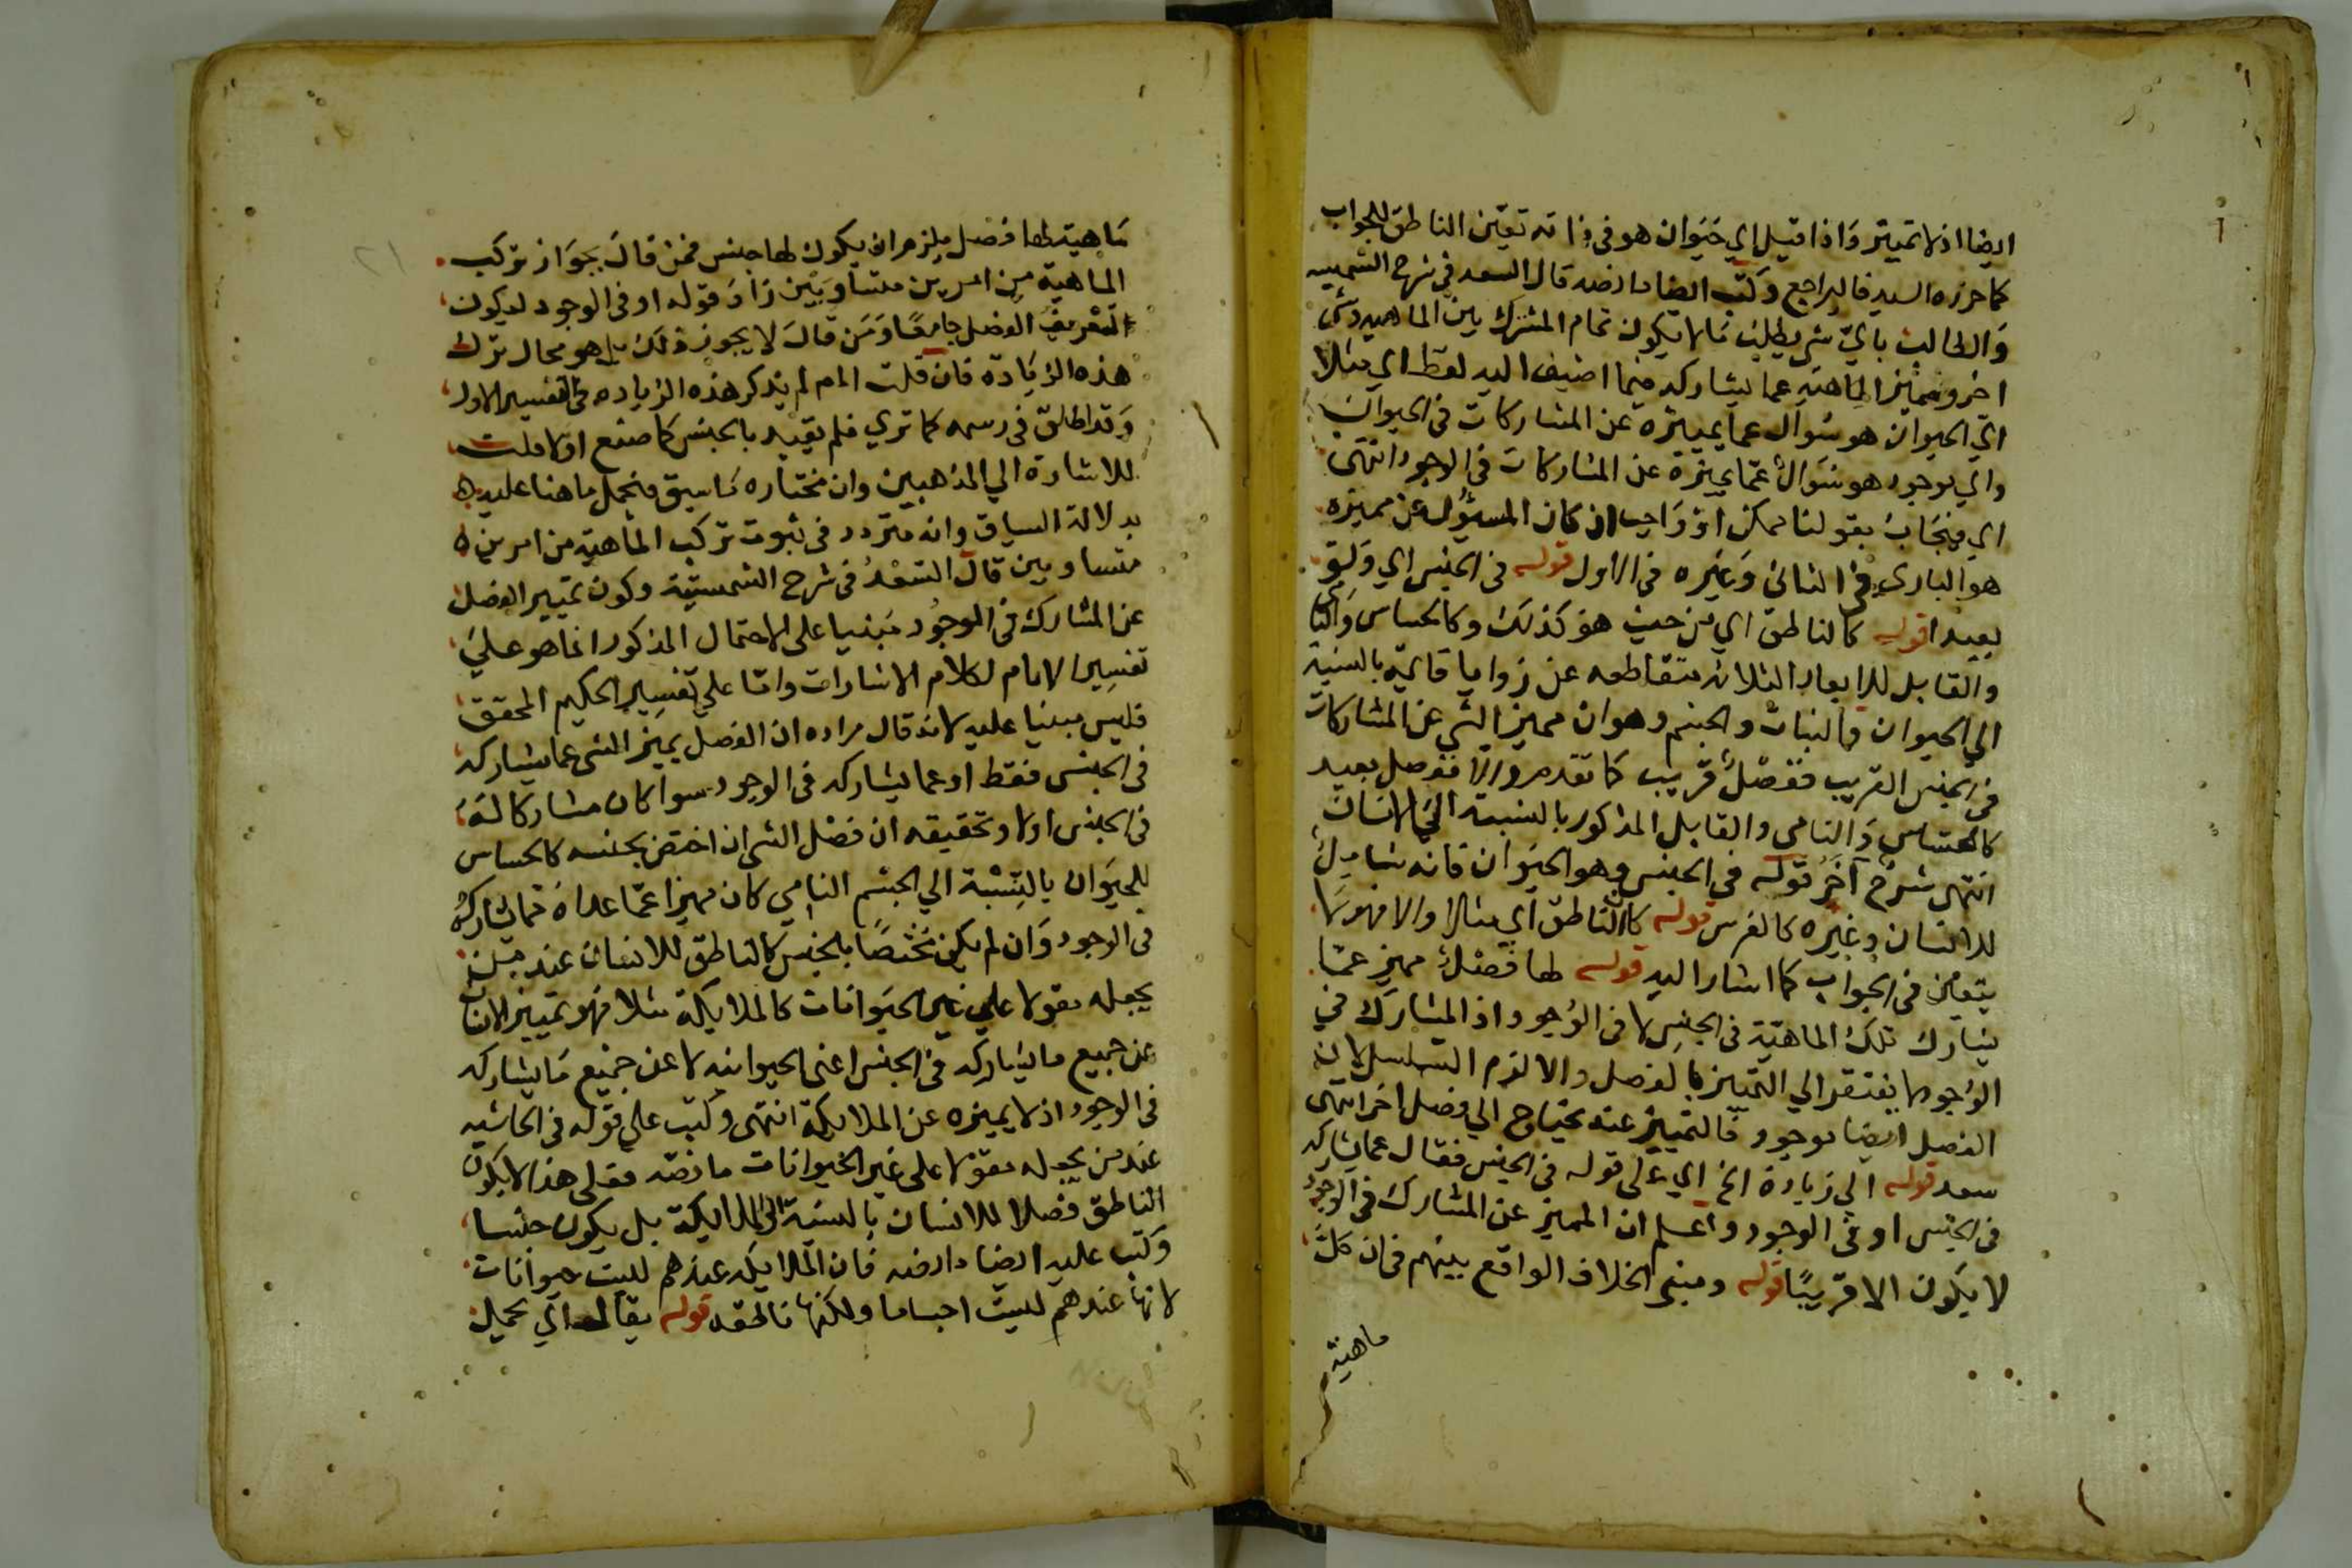 ايضا اذ لا تمييز وَاذا قيل اي حَيَوان هو في ذاته تعيّن الناطق للجواب
كما حرره السيد فاليراجع وكتب ايضا ما نصه قال السعد في شرح الشمسيه
وَالطالب بايّ شي يطلب مَا لا يكون تمام المشترك بين الماهيه وشي
اخر ومميّز الماهيّه عما يشاركه فيما اضيف اليه لفظ اي مثلا
اي الحيوان هو سُوال عما يميزه عن المشاركات في الحيوان
واي موجود هو سَوال عمّا يميزه عن المشاركات في الوجود انتهى
اي فيُجَاب بقولنا ممكن او وَاجب ان كان المسؤل عن مميزه
هو البارى في الثاني وَغيره في الاول قوله في الجنس اي وَلو
بعيدا قوله كالناطق اي من حيث هو كذلك وكالحساس وَالنامى
والقابل للابعاد الثلاثه متقاطعه عن زوايا قائمه بالنسبة
الي الحيوان والنبات والجسم وهو ان مميز الشي عن المشاركات
في الجنس القريب ففصْلٌ قريب كما تقدم والا ففصل بعيد
كالحسّاس وَالنامي والقابل المذكور بالنسبة الي الانسان
انتهى شرح آخر قوله في الجنس وهو الحيَوان فانه شامل
للانسان وغيره كالفرس قوله كالناطق اي مثلا والا فهو مَا
يتعين في الجواب كما اشار اليه قوله لها فصْلٌ مميز عمّا
يشارك تلك الماهيّة في الجنس لا في الوُجود اذ المشارك في
الوُجود لا يفتقر الي التمييز بالفصل والا لزم التسلسل لان
الفصل ايضا موجود فَالتمييز عنه يحتاج الي فصل اخر انتهى
سعد قوله الي زيادة الخ اي على قوله في الجنس فقال عما يشاركه
في الجنس او في الوجود واعلم ان المميز عن المشارك في الوجود
لا يكون الا قريبًا قوله ومبنى الخلاف الواقع بينهم فى ان كلّ
ماهية
مَاهية لها فصل يلزم ان يكون لها جنس فمن قالَ بجوَاز تركب
الماهية من امرين متساويَيْن زَادَ قوله او في الوجود ليكون
التعريف الفصل جامعًا وَمَن قالَ لا يجوز ذلك بل هو محال ترك
هذه الزيَادة فان قلت لم لم يذكر هذه الزياده في التفسير الاول
وَقد اطلق في رسمه كما تري فلم يقيد بالجنس كما صنع اولا قلت
للاشارة الي المذهبين وان مختاره مَا سبق فيحمل ما هنا عليه
بدلالة السياق وانه متردد في ثبوت تركب الماهية من امرين
متساويين قال السّعْدُ في شرح الشمسيّة وكون تمييز الفصل
عن المشارك في الوجُود مَبنيا على الاحتمال المذكور انما هو عليَ
تفسِير الامام لكلام الاشارات وامّا علي تفسِير الحكيم المحقق
فليس مبنيا عليه لانه قال مراده ان الفصل يميز الشى عما يشاركه
في الجنس فقط او عما يشاركه في الوجود سوا كان مشاركا لهَ
في الجنس اولا وتحقيقه ان فصْل الشى ان اختص بجنسه كالحساس
للحيَوان بالنِسْبة الي الجسْم النامِي كان مميزا عمّا عداهُ مما يشاركهُ
في الوجود وَان لم يكن مخْتصًا بالجنس كالناطق للانسان عند من
يجعله مقولا علي غير الحيَوانات كالملائكة مثلا فهو تمييز الانسان
عن جميع ما يشاركه في الجنس اعنى الحيوانيه لا عن جميع مَا يشاركه
في الوجود اذ لا يميزه عن الملائكة انتهى وكتب علي قوله في الحاشيه
عند من يجعله مقولا على غير الحيوانات ما نصّه فعلى هذا لا يكون
الناطق فصلا للانسان بالنسبة الى الملائكة بل يكون جنسا
وَكتب عليه ايضا ما نصه فان الملائكه عندهم ليست حيوانات
لانها عندهم ليست اجساما ولكنها ناطقه قوله يقال اي يحمل